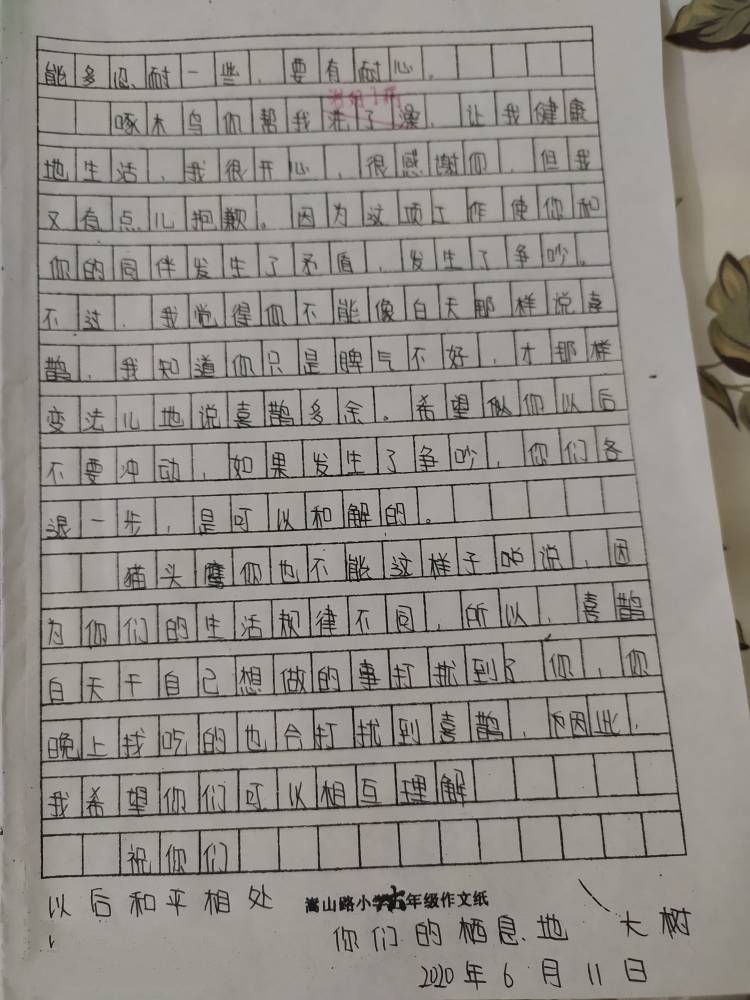 能多忍耐一些，要有耐心。
治好了病
啄木鸟你帮我洗了澡，让我健康
地生活，我很开心，很感谢你，但我
又有点儿抱歉。因为这项工作使你和
你的同伴发生了矛盾，发生了争吵。
不过，我觉得你不能像白天那样说喜
鹊，我知道你只是脾气不好，才那样
变法儿地说喜鹊多余。希望你以后
不要冲动，如果发生了争吵，你们各
退一步，是可以和解的。
猫头鹰你也不能这样子说，因
为你们的生活规律不同，所以，喜鹊
白天干自己想做的事打扰到了你，你
晚上找吃的也会打扰到喜鹊，因此，
我希望你们可以相互理解
祝你们
以后和平相处
嵩山路小学五年级作文纸
你们的栖息地 大树
2020年6月11日